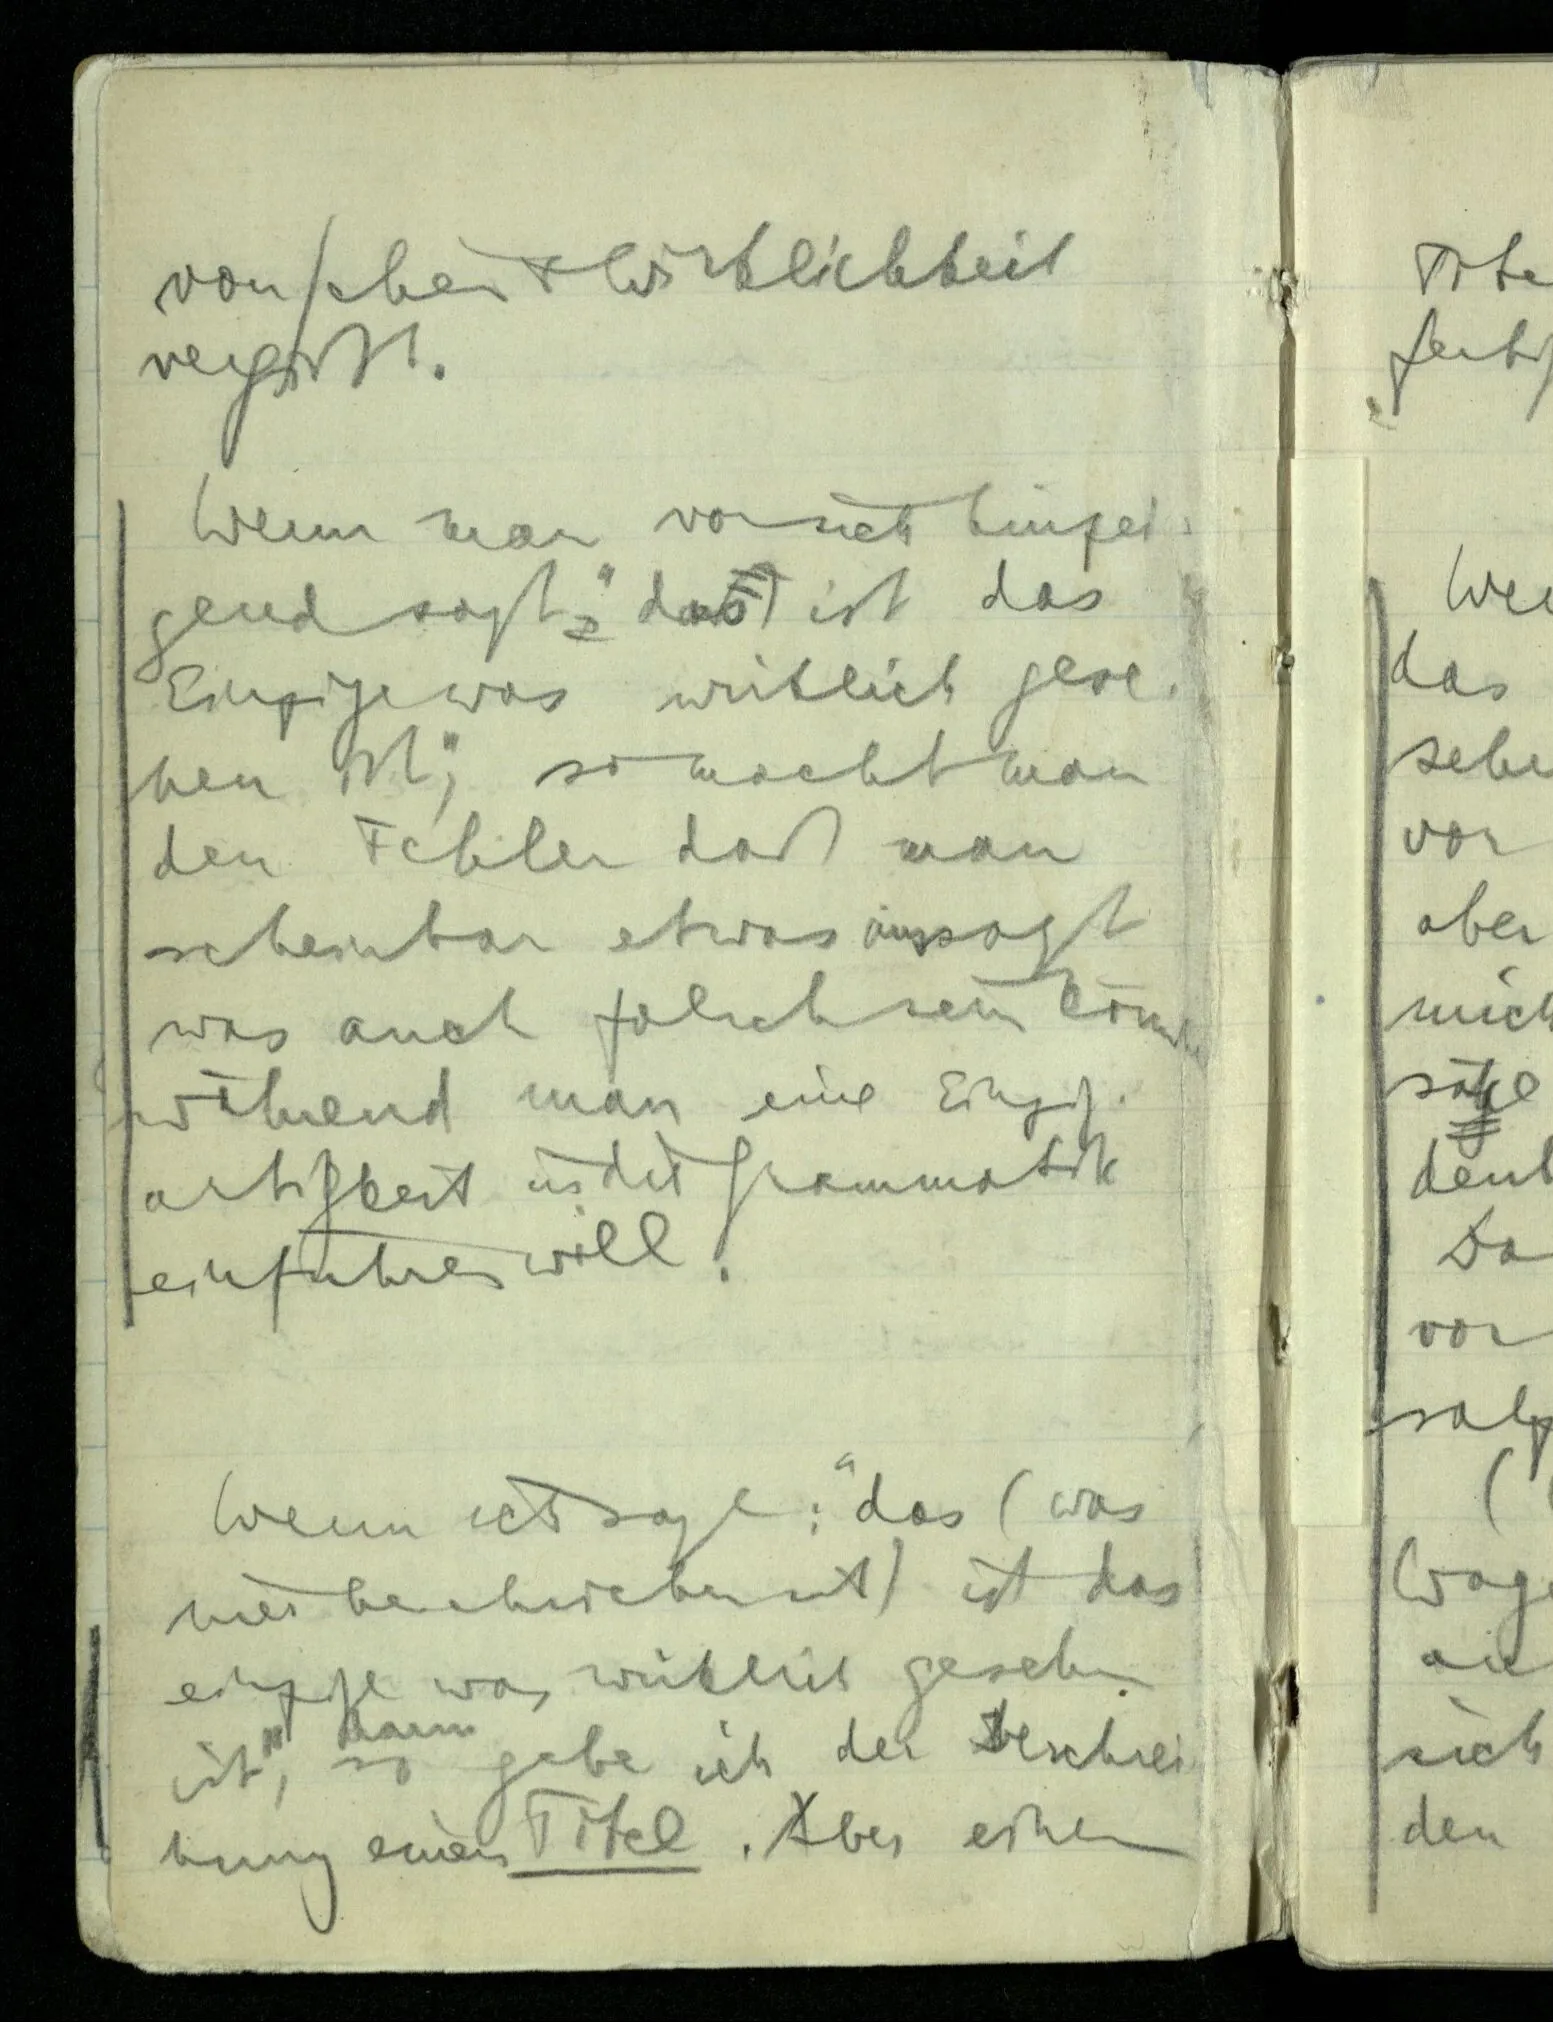 von Schein & Wirklichkeit
vergißt.
Wenn man vor sich hinzei-
gend sagt: "das ist das
Einzige was wirklich gese-
hen ist", so macht man
den Fehler daß man
scheinbar etwas aussagt
was auch falsch sein könnte
während man eine Einzig-
artigkeit in die Grammatik
einführen will.
Wenn ich sage: "das (was
hier beschrieben ist) ist das
einzige was wirklich gesehen
ist", so kann
gebe ich der Beschrei
bung einen Titel. Aber einen
das
vor
aber
mich
sich
den